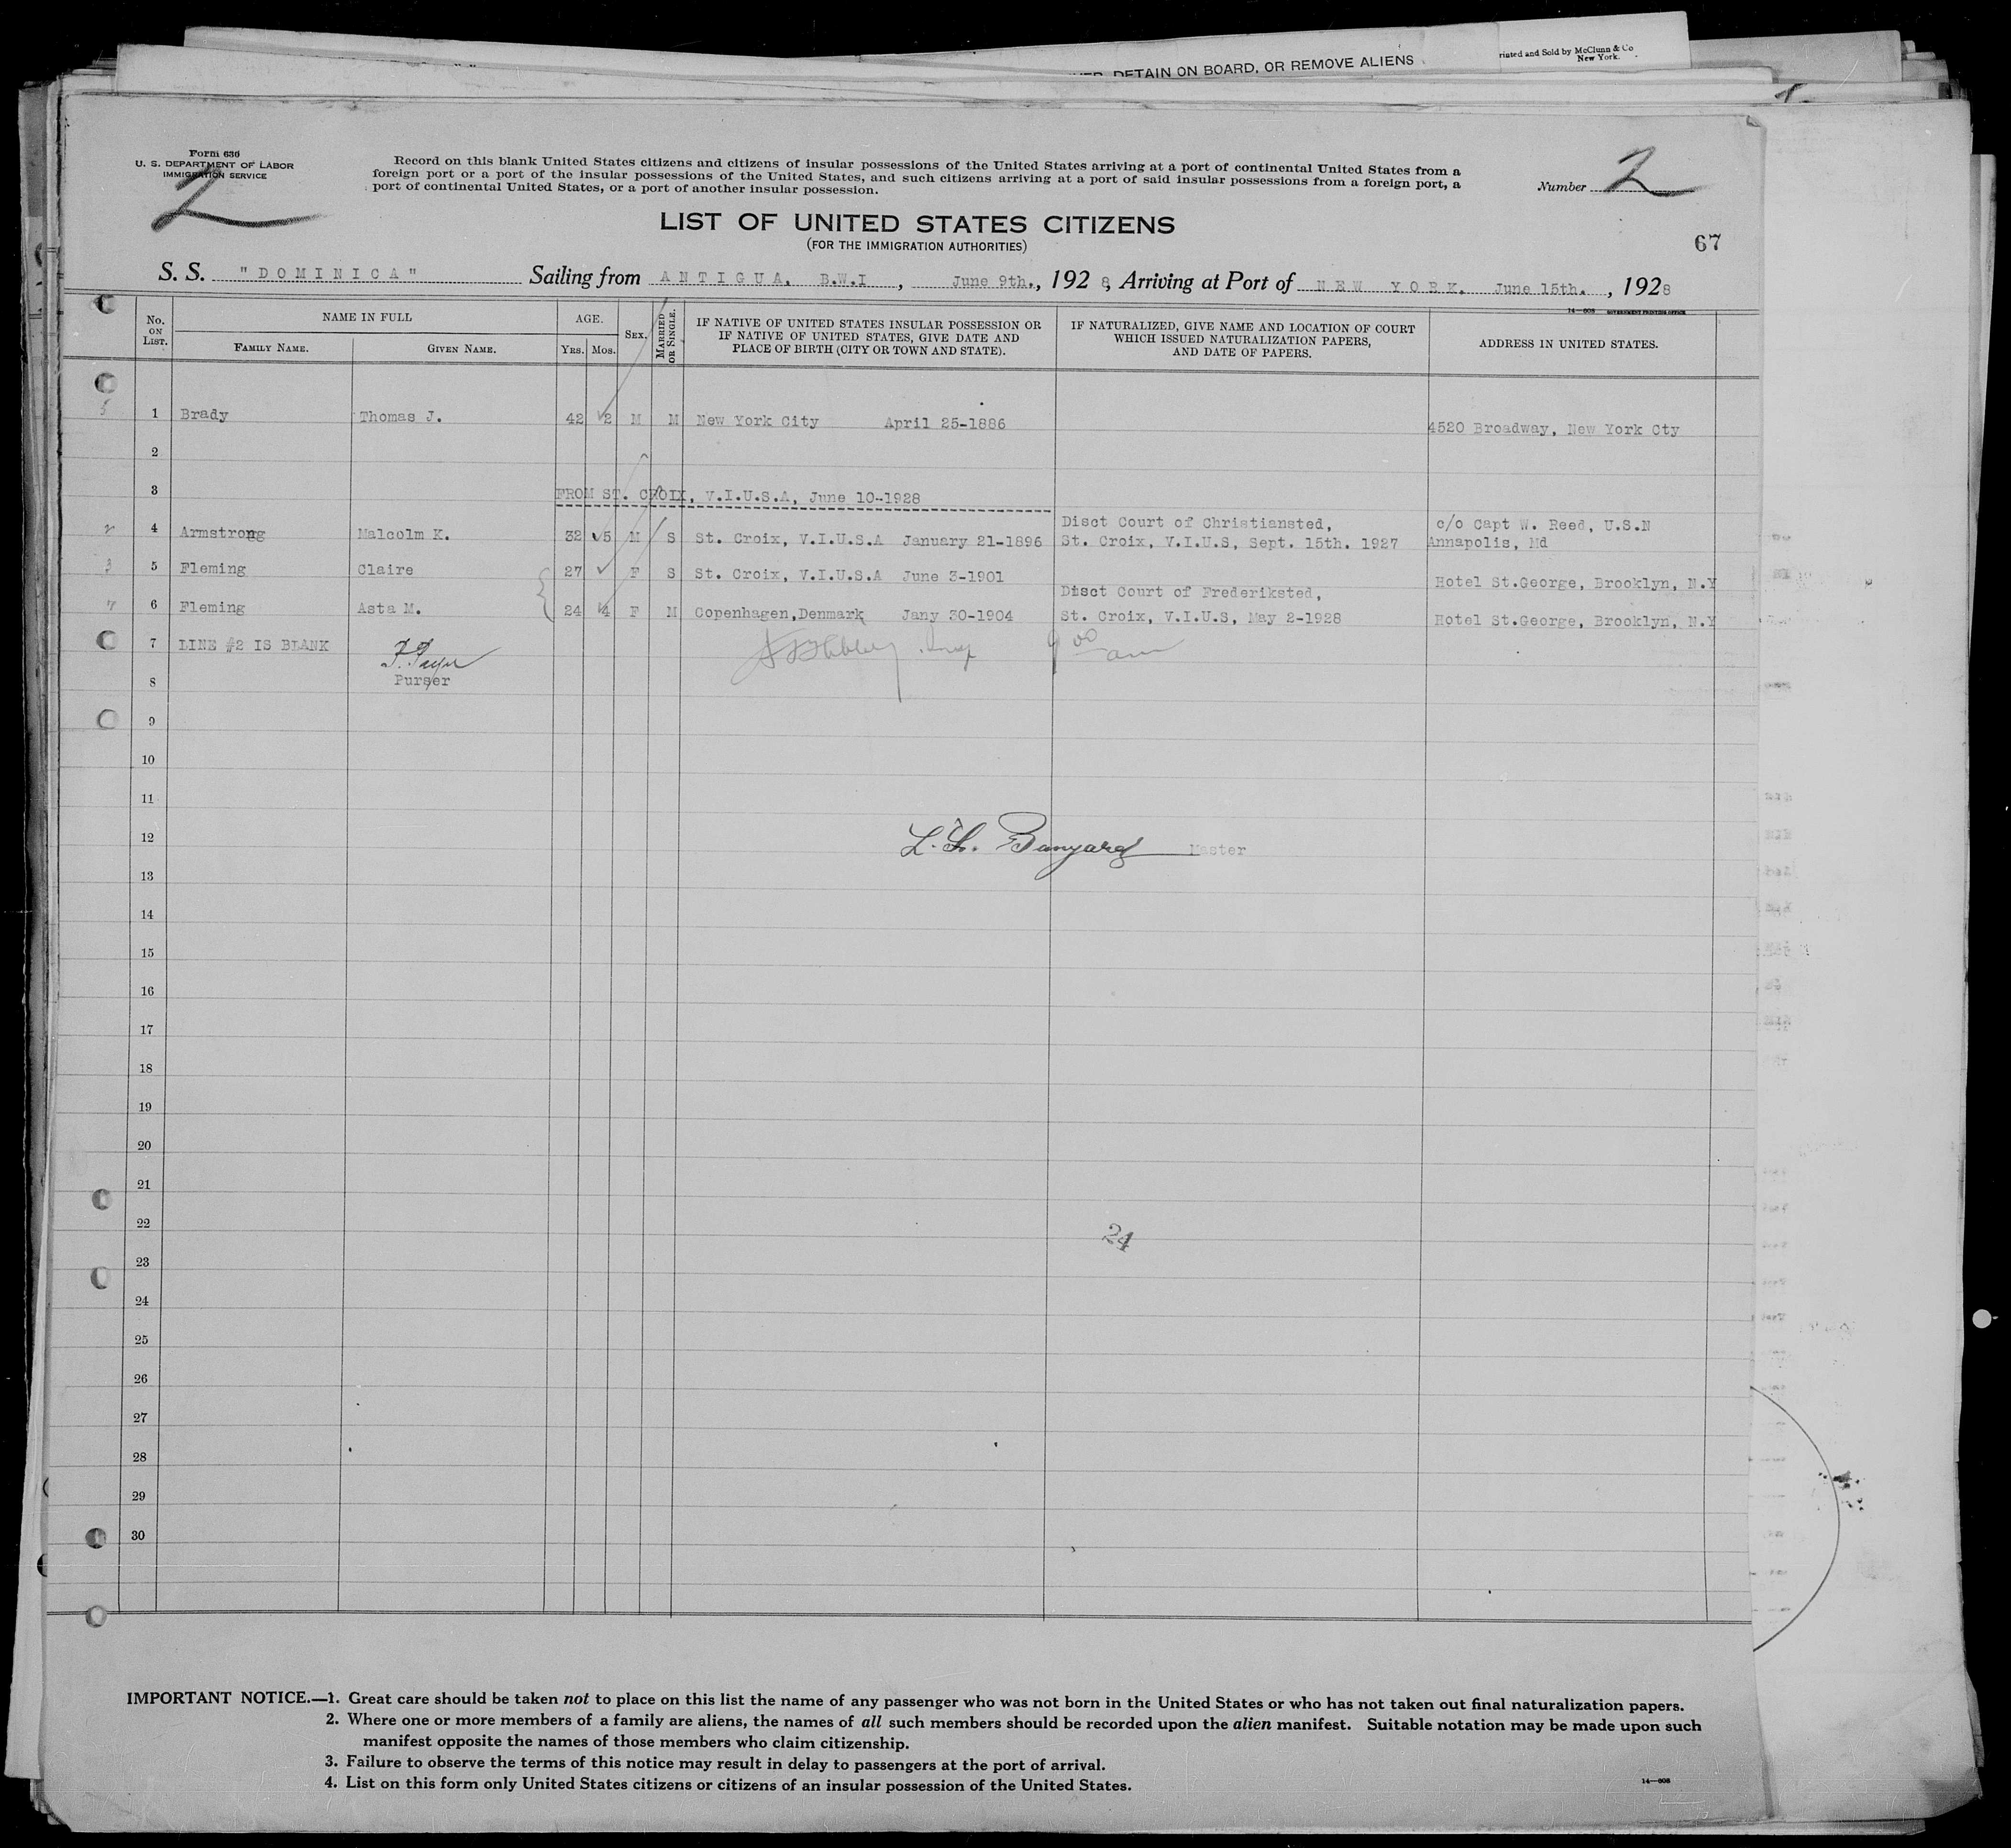 DETAIN ON BOARD, OR REMOVE ALIENS
rinted and Sold by McClunn & Co
New York.
Form 630
U. S. DEPARTMENT OF LABOR
IMMIGRATION SERVICE
2
Record on this blank United States citizens and citizens of insular possessions of the United States arriving at a port of continental United States from a
foreign port or a port of the insular possessions of the United States, and such citizens arriving at a port of said insular possessions from a foreign port, a
port of continental United States, or a port of another insular possession.
Number 2
LIST OF UNITED STATES CITIZENS
(FOR THE IMMIGRATION AUTHORITIES)
67
S. S. "DOMINICA" Sailing from ANTIGUA, B.W.I , June 9th., 1928, Arriving at Port of NEW YORK. June 15th. , 1928
14—608 GOVERNMENT PRINTING OFFICE
No. ON LIST. NAME IN FULL FAMILY NAME. GIVEN NAME. AGE. YRS. MOS. SEX. MARRIED OR SINGLE. IF NATIVE OF UNITED STATES INSULAR POSSESSION OR IF NATIVE OF UNITED STATES, GIVE DATE AND PLACE OF BIRTH (CITY OR TOWN AND STATE). IF NATURALIZED, GIVE NAME AND LOCATION OF COURT WHICH ISSUED NATURALIZATION PAPERS, AND DATE OF PAPERS. ADDRESS IN UNITED STATES.
1 Brady Thomas J. 42 2 M M New York City April 25-1886 4520 Broadway, New York Cty
2
3 FROM ST. CROIX, V.I.U.S.A, June 10-1928
4 Armstrong Malcolm K. 32 5 M S St. Croix, V.I.U.S.A January 21-1896 Disct Court of Christiansted, St. Croix, V.I.U.S, Sept. 15th. 1927 c/o Capt W. Reed, U.S.N Annapolis, Md
5 Fleming Claire 27 F S St. Croix, V.I.U.S.A June 3-1901 Hotel St.George, Brooklyn, N.Y
6 Fleming Asta M. 24 4 F M Copenhagen,Denmark Jany 30-1904 Disct Court of Frederiksted, St. Croix, V.I.U.S, May 2-1928 Hotel St.George, Brooklyn, N.Y
7 LINE #2 IS BLANK 9 00 am
Purser
8
9
10
11
12 Master
13
14
15
16
17
18
19
20
21
22
24
23
24
25
26
27
28
29
30
IMPORTANT NOTICE.—1. Great care should be taken not to place on this list the name of any passenger who was not born in the United States or who has not taken out final naturalization papers.
2. Where one or more members of a family are aliens, the names of all such members should be recorded upon the alien manifest. Suitable notation may be made upon such
manifest opposite the names of those members who claim citizenship.
3. Failure to observe the terms of this notice may result in delay to passengers at the port of arrival.
4. List on this form only United States citizens or citizens of an insular possession of the United States.
14—608